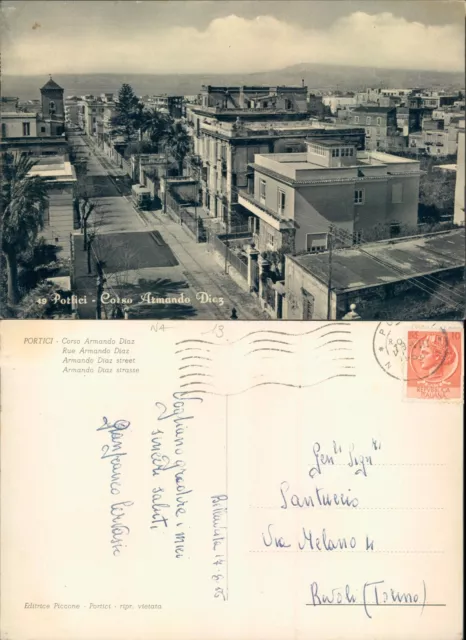 19 Portici - Corso Armando Diaz
PORTICI - Corso Armando Diaz
Rue Armando Diaz
Armando Diaz street
Armando Diaz strasse
NA
13
Vogliano gradire i miei
sinceri saluti
Gianfranco
17
Gen.li Sig.ri
Santuccio
Via Melano 4
Rivoli (Torino)
Editrice Piccone - Portici - ripr. vietata